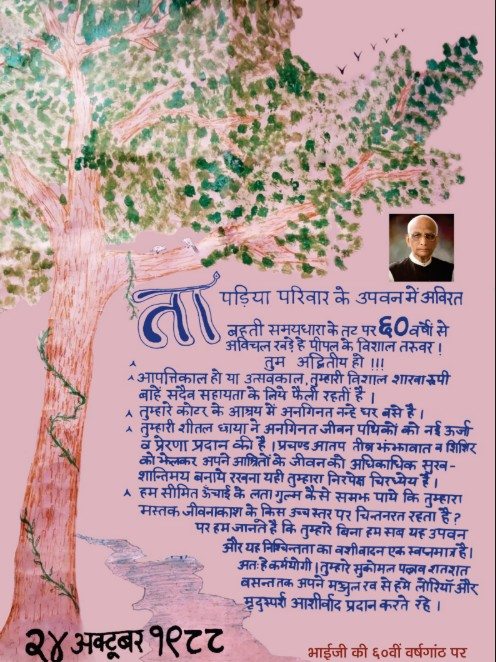 तापड़िया परिवार के उपवन में अविरत
बहती समयधारा के तट पर ६० वर्षों से
अविचल खड़े हे पीपल के विशाल तरुवर !
तुम अद्वितीय हो !!!
आपत्तिकाल हो या उत्सवकाल, तुम्हारी विशाल शाखा रूपी
बाहें सदैव सहायता के लिये फैली रहती हैं ।
तुम्हारे कोटर के आश्रय में अनगिनत नन्हे घर बसे हैं ।
तुम्हारी शीतल छाया ने अनगिनत जीवन पथिकों को नई ऊर्जा
व प्रेरणा प्रदान की है । प्रचण्ड आतप तीव्र झंझावात व शिशिर
को झेलकर अपने आश्रितों के जीवन को अधिकाधिक सुख-
शान्तिमय बनाये रखना यही तुम्हारा निरपेक्ष चिरध्येय है ।
हम सीमित ऊँचाई के लता गुल्म कैसे समझ पाये कि तुम्हारा
मस्तक जीवनाकाश के किस उच्च स्तर पर चिन्तनरत रहता है ?
पर हम जानते है कि तुम्हारे बिना हम सब यह उपवन
और यह निश्चिन्तता का वंशीवादन एक स्वप्नमात्र है।
अतः हे कर्मयोगी ! तुम्हारे सुकोमल पल्लव शतशत
वसन्त तक अपने मञ्जुल रव से हमे लोरियाँ और
मृदुस्पर्श आशीर्वाद प्रदान करते रहे ।
२४ अक्टूबर १९८८
भाईजी की ६०वीं वर्षगांठ पर